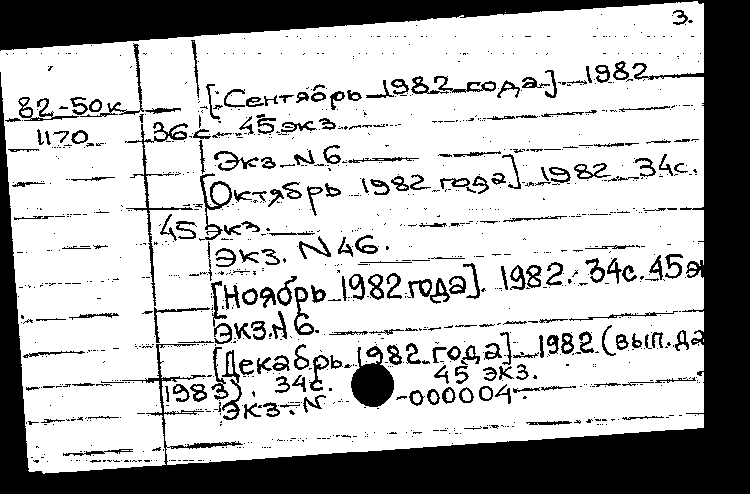 3.
82-50к [Сентябрь 1982 года] 1982
1170 36с 45 экз
Экз N 6
[Октябрь 1982 года] 1982 34с.
45 экз.
Экз. N 46.
[Ноябрь 1982 года]. 1982. 34с. 45 эк
Экз. N 6.
[Декабрь 1982 года] 1982 (вып. да
1983). 34с. 45 экз.
Экз. N -000004.